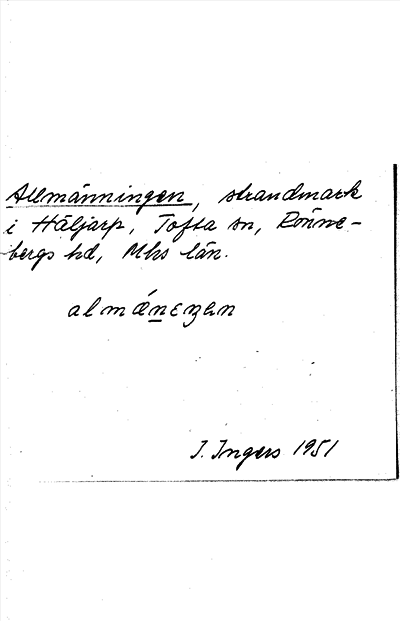 Allmänningen, strandmark
i Häljarp, Tofta sn, Rönne-
bergs hd, Mhs län.
almǽnεŋən
I. Ingers 1951